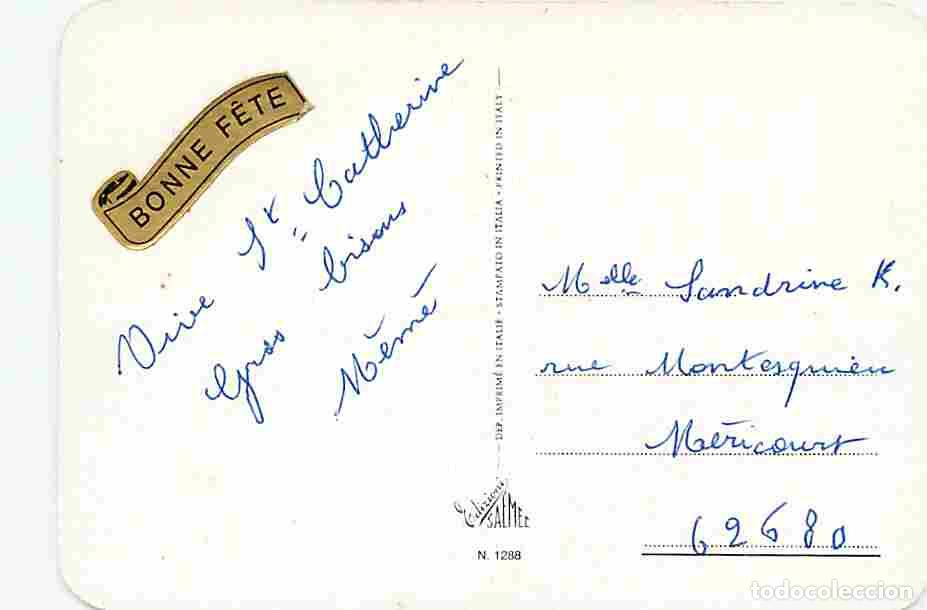 BONNE FÊTE
Vive St Catherine
Gros bisous
Mémé
DEP. IMPRIMÉ EN ITALIE - STAMPATO IN ITALIA - PRINTED IN ITALY
Melle Sandrine K.
rue Montesquieu
Méricourt
62680
Edizioni
SAEMEC
N. 1288
todocoleccion